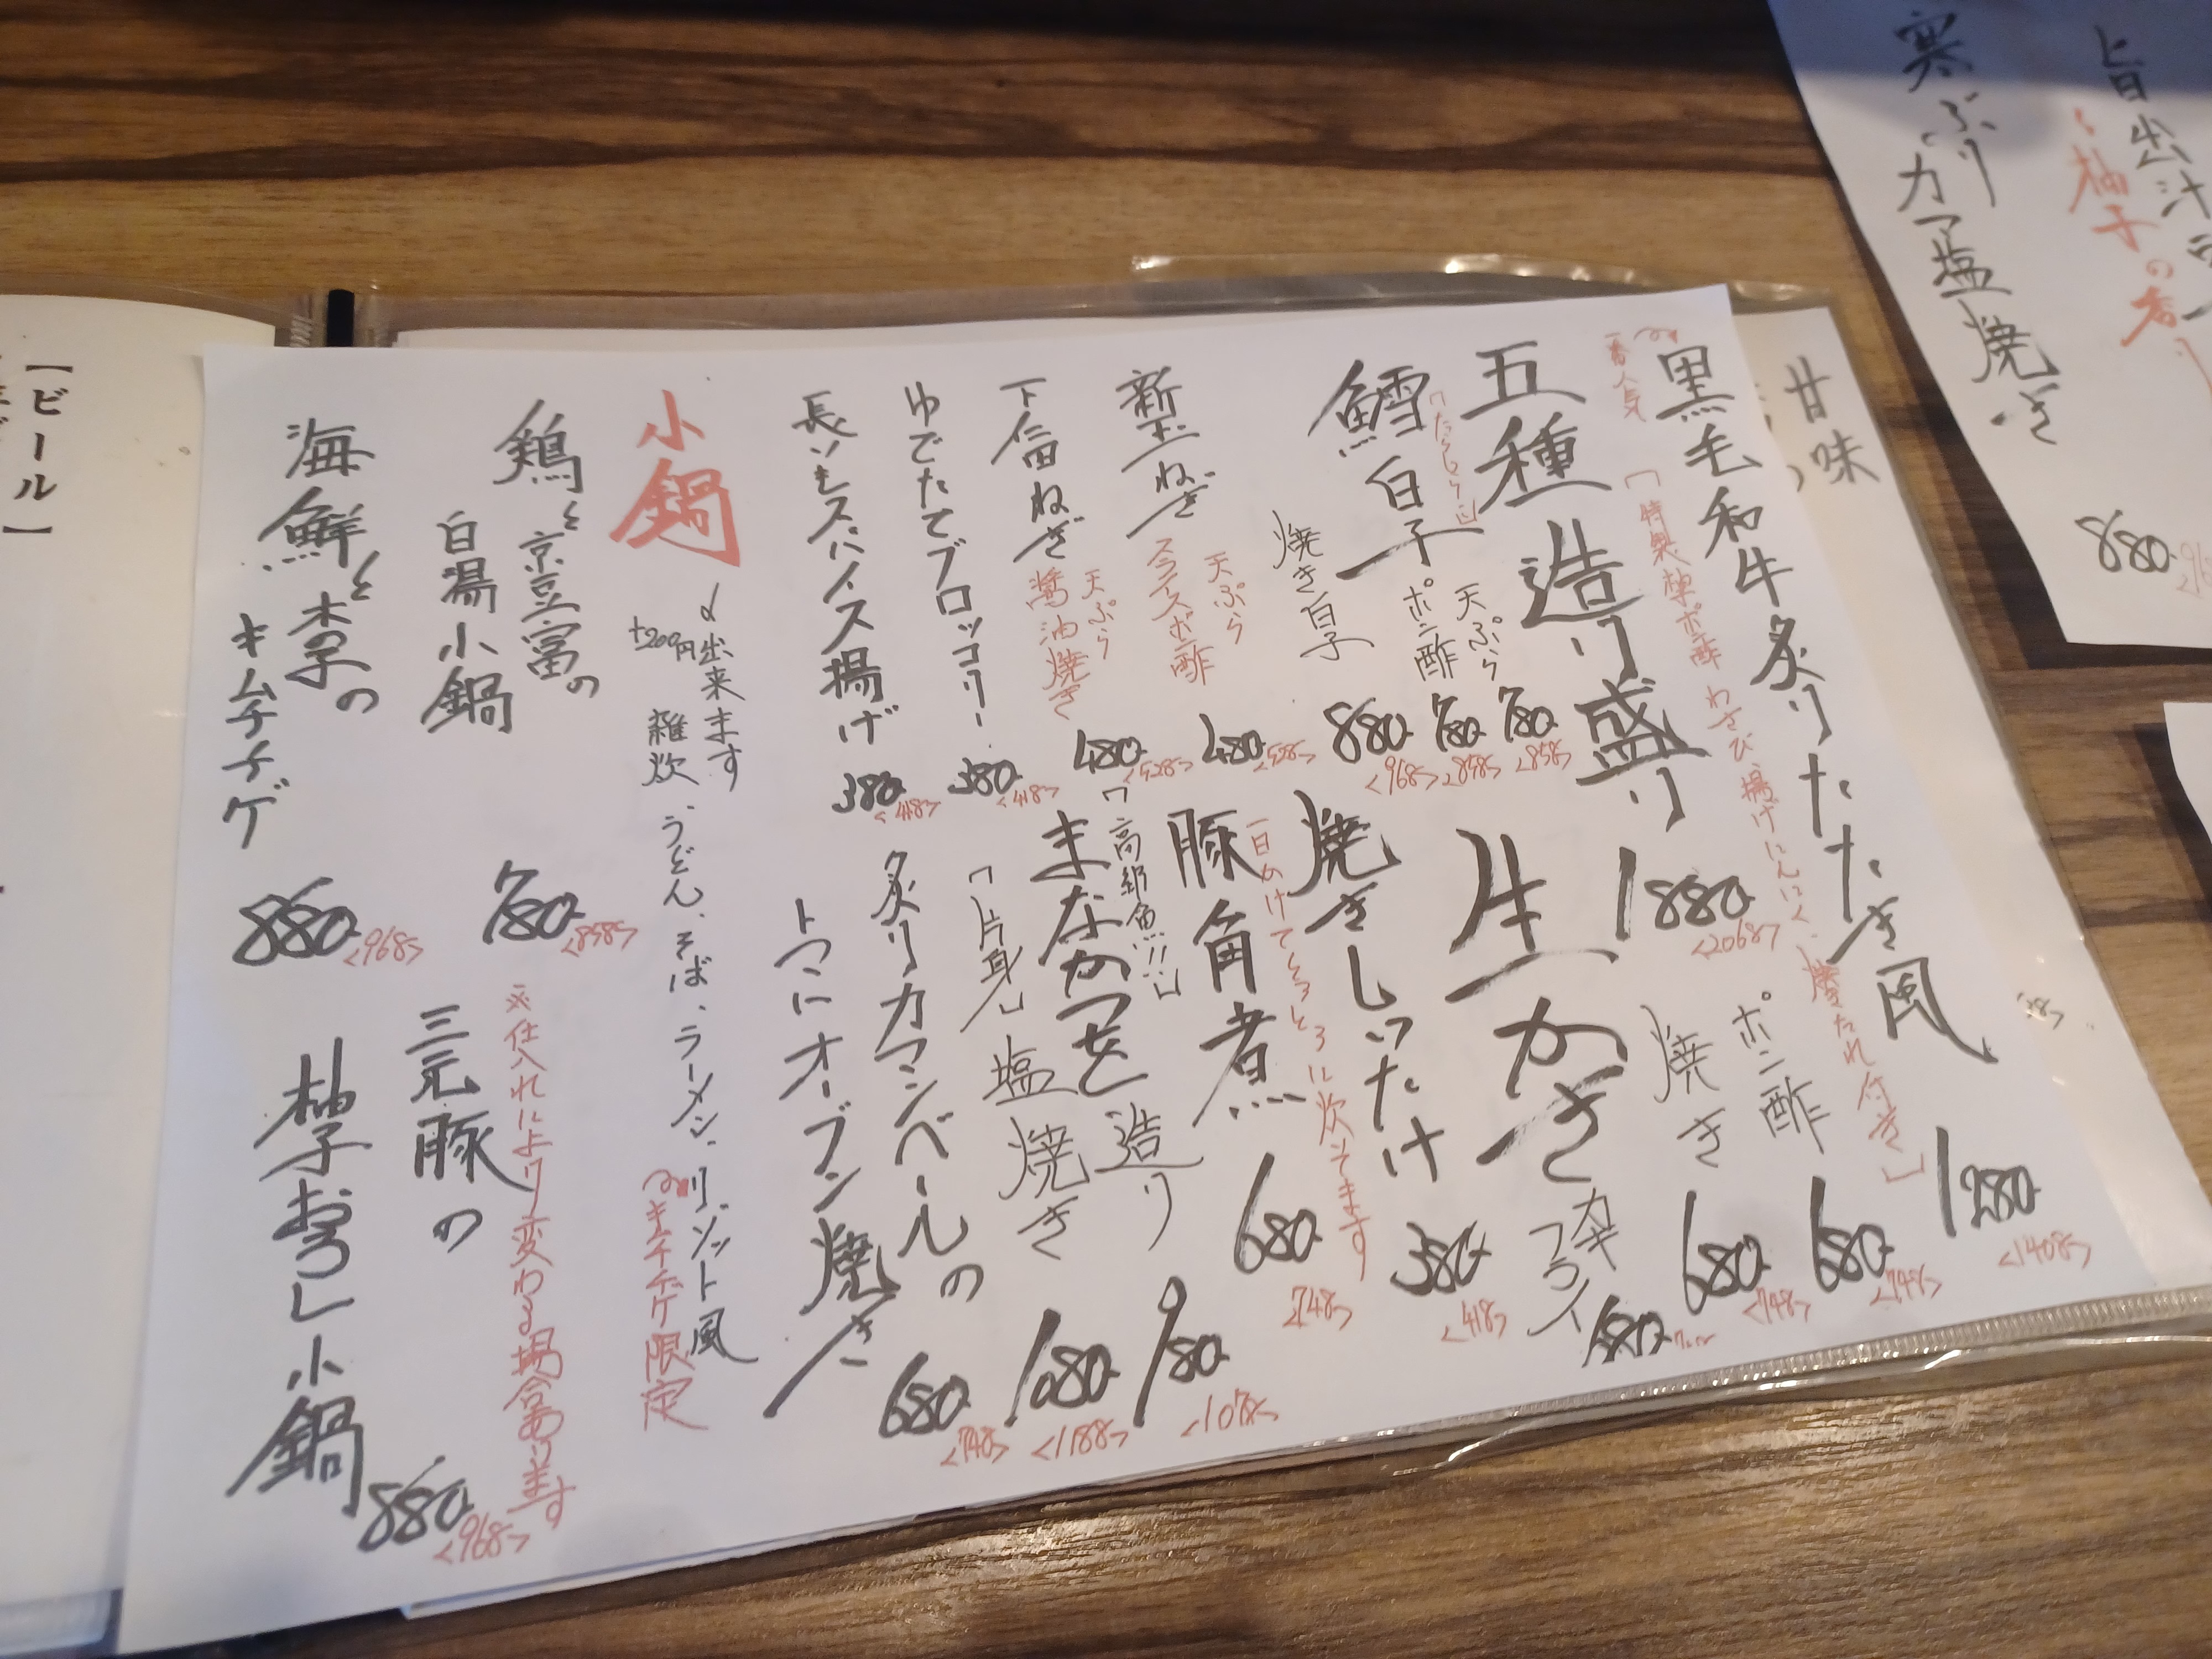 黒毛和牛炙りたたき風
一番人気
「特製柚ポン酢 わさび、揚げにんにく、燻たれ付き」
1280 <1408>
五種造り盛り 1880 <2068>
鱈白子
「たらしらこ」
天ぷら 780 <858>
ポン酢 780 <858>
焼き白子 880 <968>
生かき
ポン酢 680 <748>
焼き 680 <748>
フライ
焼きしいたけ 380 <418>
新玉ねぎ
天ぷら
スライスポン酢
480 <528>
豚角煮 680 <748>
一日かけてとろとろに炊いてます
下仁田ねぎ
天ぷら
醤油焼き
480 <528>
まなかつを
「高級魚!!」
造り 980 <1078>
「片身」塩焼き 1080 <1188>
ゆでたてブロッコリー 380 <418>
長いもスパイス揚げ 380 <418>
炙りカマンベールの
トマトオーブン焼き
680 <748>
小鍋
〆出来ます
+200円
雑炊、うどん、そば、ラーメン、リゾット風
キムチチゲ限定
鶏と京豆富の
白湯小鍋
780 <858>
※仕入れにより変わる場合あります
三元豚の
柚子おろし小鍋
880 <968>
海鮮と杏の
キムチチゲ
880 <968>
寒ぶりカマ塩焼き
880
旨出汁
柚子の香り
甘味
【ビール】